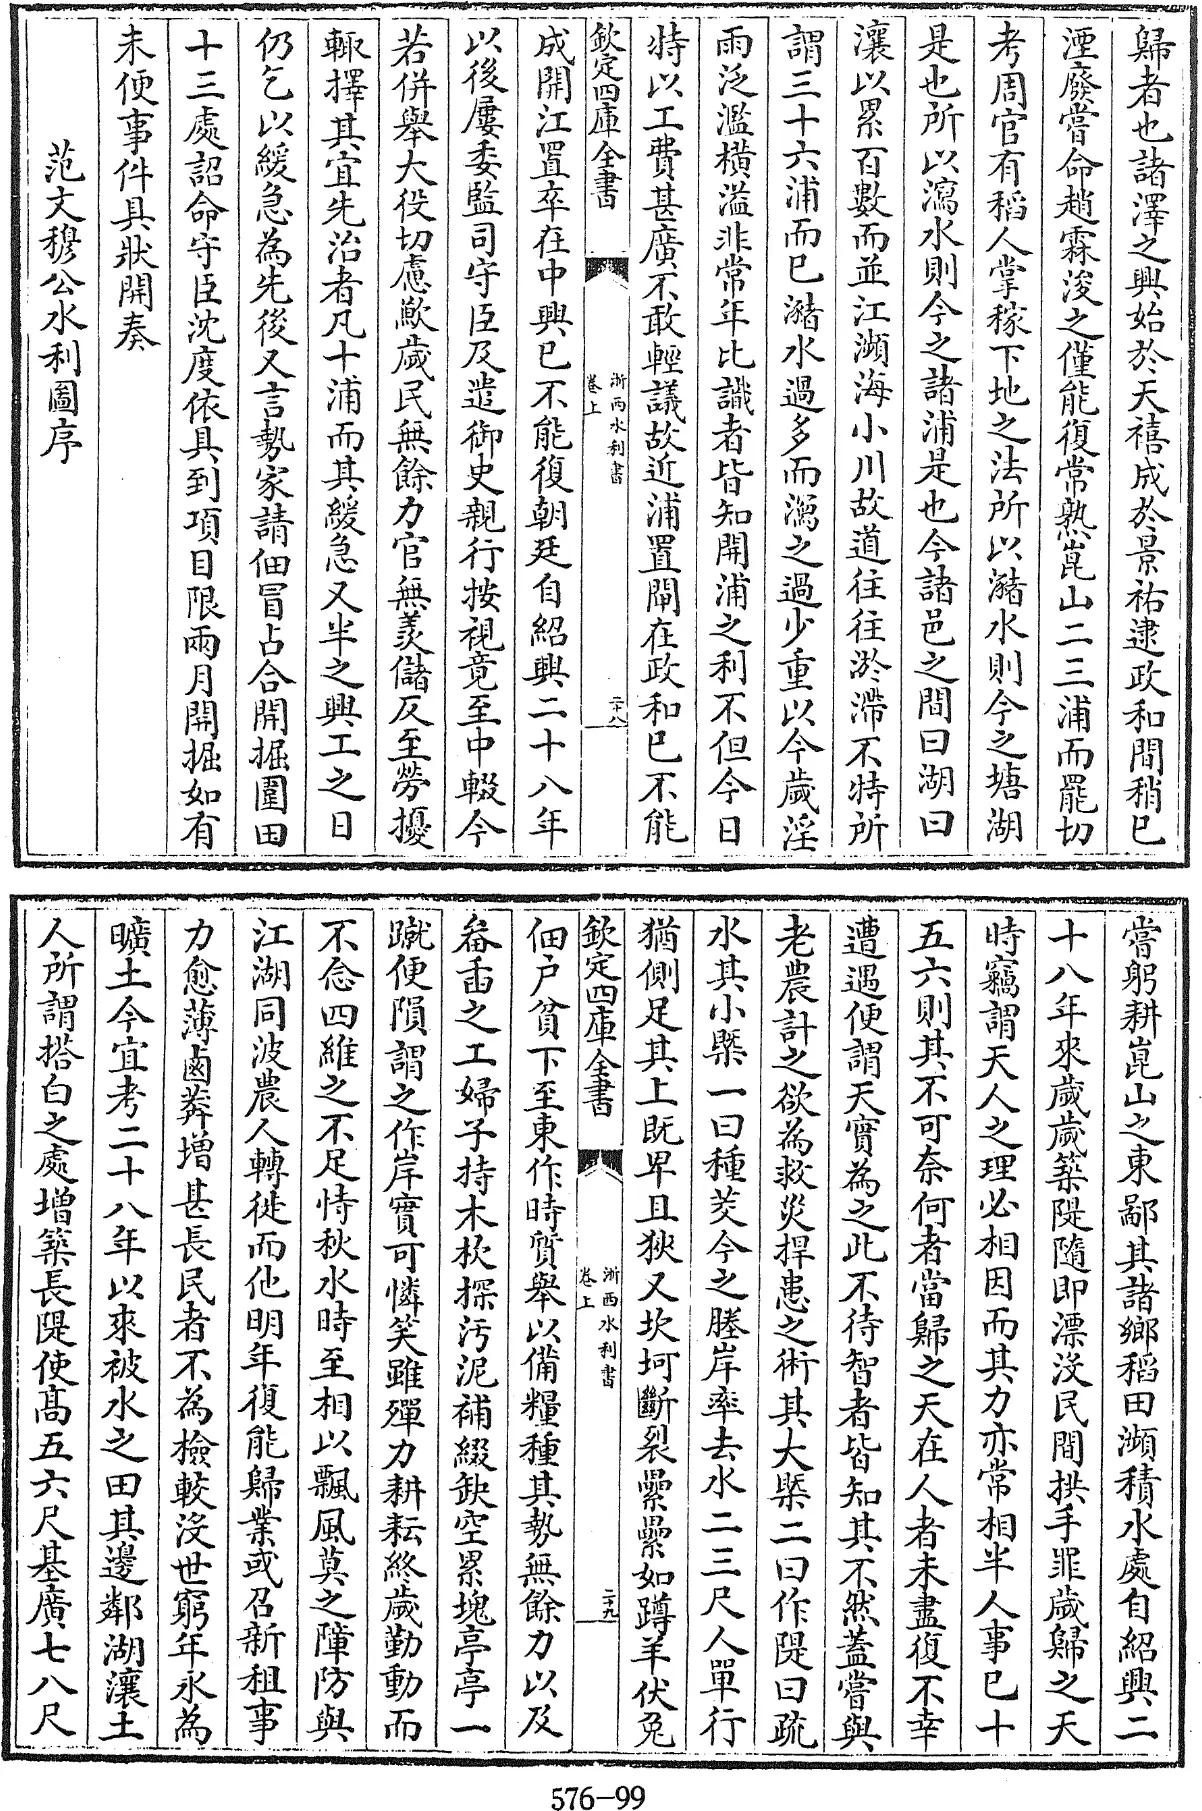 歸者也諸澤之興始於天禧成於景祐逮政和間稍已
湮廢嘗命趙霖浚之僅能復常熟崑山二三浦而罷切
考周官有稻人掌稼下地之法所以瀦水則今之塘湖
是也所以瀉水則今之諸浦是也今諸邑之間曰湖曰
瀼以累百數而並江瀕海小川故道往往淤滯不特所
謂三十六浦而已瀦水過多而瀉之過少重以今歲淫
雨泛濫橫溢非常年比識者皆知開浦之利不但今日
特以工費甚廣不敢輕議故近浦置閘在政和已不能
欽定四庫全書
浙西水利書
卷上
二十八
成開江置卒在中興已不能復朝廷自紹興二十八年
以後屢委監司守臣及遣御史親行按視竟至中輟今
若併舉大役切慮歉歲民無餘力官無羨儲反至勞擾
輒擇其宜先治者凡十浦而其緩急又半之興工之日
仍乞以緩急為先後又言勢家請佃冒占合開掘圍田
十三處詔命守臣沈度依具到項目限兩月開掘如有
未便事件具狀開奏
范文穆公水利圖序
嘗躬耕崑山之東鄙其諸鄉稻田瀕積水處自紹興二
十八年來歲歲築隄隨即漂沒民間拱手罪歲歸之天
時竊謂天人之理必相因而其力亦常相半人事已十
五六則其不可奈何者當歸之天在人者未盡復不幸
遭遇便謂天實為之此不待智者皆知其不然蓋嘗與
老農計之欲為救災捍患之術其大槩二曰作隄曰疏
水其小槩一曰種茭今之塍岸率去水二三尺人單行
猶側足其上既卑且狹又坎坷斷裂纍纍如蹲羊伏兔
欽定四庫全書
浙西水利書
卷上
二十九
佃戶貧下至東作時質舉以備糧種其勢無餘力以及
畚臿之工婦子持木杴探汚泥補綴缺空累塊亭亭一
蹴便隕謂之作岸實可憐笑雖殫力耕耘終歲勤動而
不念四維之不足恃秋水時至相以飄風莫之障防與
江湖同波農人轉徙而他明年復能歸業或召新租事
力愈薄鹵莽增甚長民者不為檢較沒世窮年永為
曠土今宜考二十八年以來被水之田其邊鄰湖瀼土
人所謂搭白之處增築長隄使高五六尺基廣七八尺
576-99